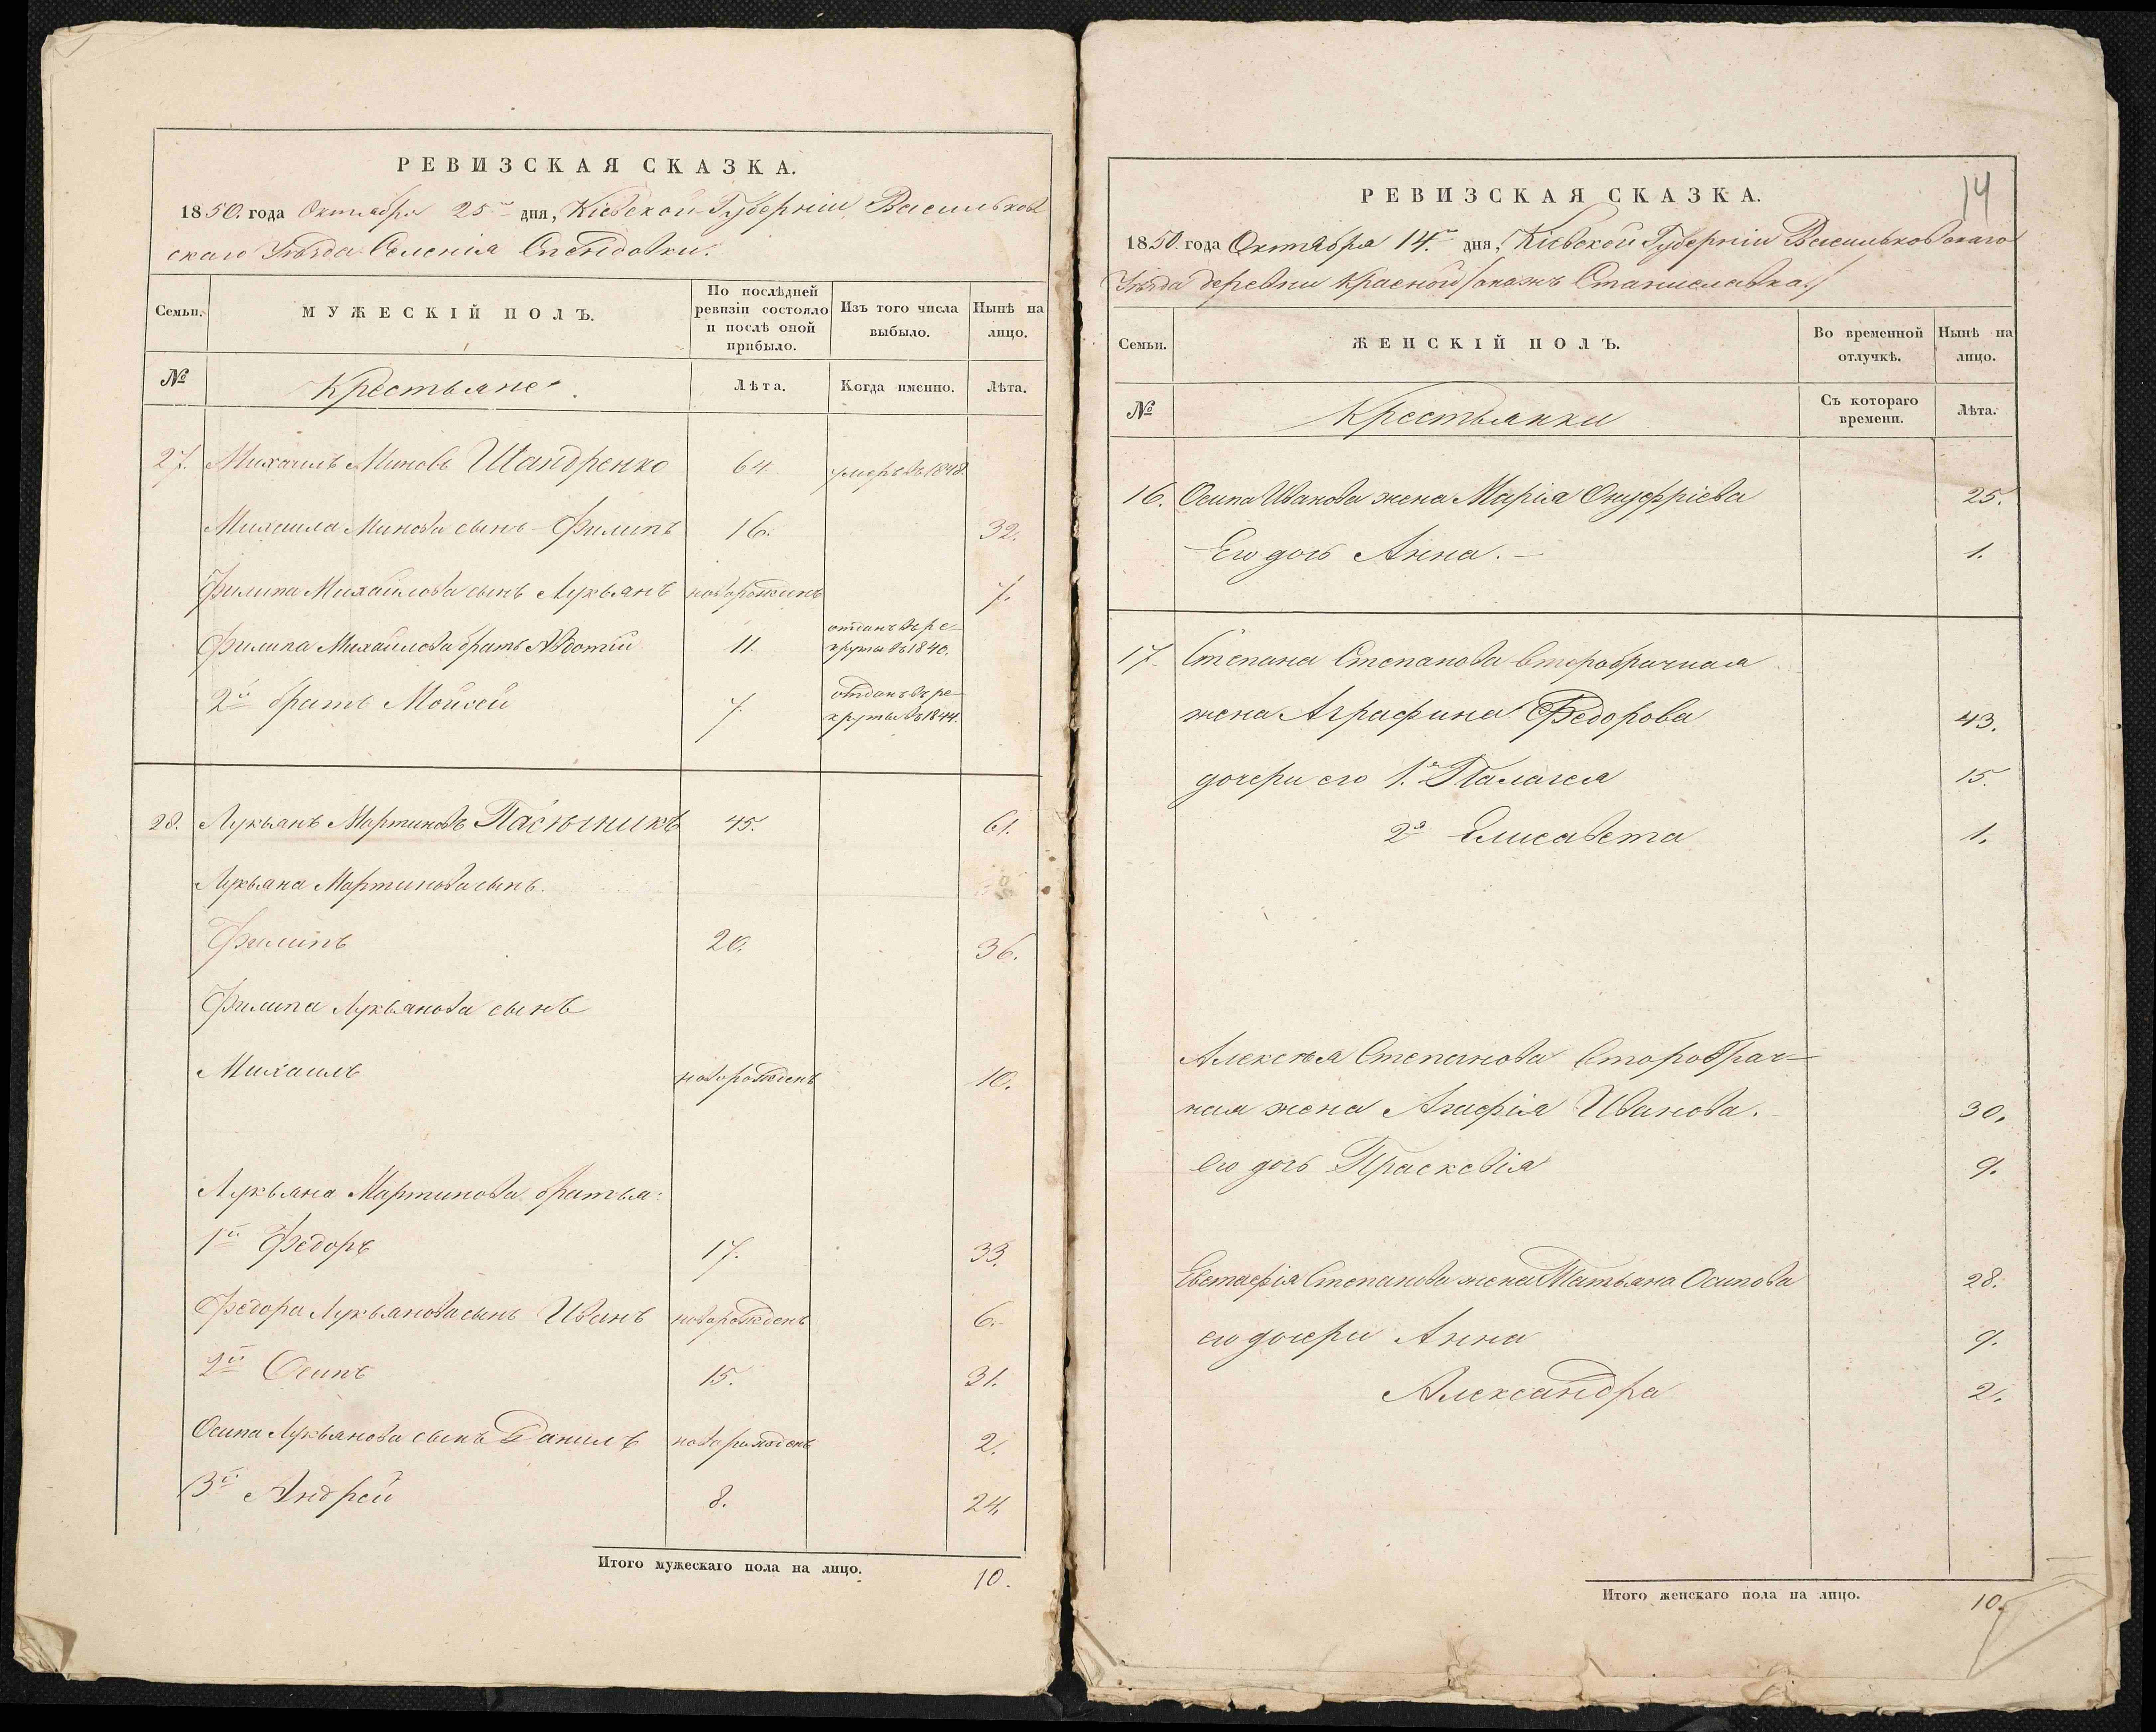 РЕВИЗСКАЯ СКАЗКА.
1850. года Октября 25го дня, Кіевской Губерніи Васильков
скаго Уѣзда Селенія
Семьи.
МУЖЕСКІЙ ПОЛЪ.
По послѣдней ревизіи состояло и послѣ оной прибыло.
Изъ того числа выбыло.
Нынѣ на лицо.
№
Крестьяне.
Лѣта.
Когда именно.
Лѣта.
27. Михаилъ Миновъ Шандренко 64 умеръ въ 1848.
Михаила Минова сынъ Филипъ 16. 32.
Филипа Михайлова сынъ Лукьянъ новорожденъ 7.
Филипа Михайлова братъ 11. отданъ въ ре-
круты въ 1840.
2й братъ Мойсей 7. отданъ въ ре-
круты въ 1844.
28. Лукьянъ Мартиновъ Пасѣчникъ 45. 61.
Лукьяна Мартинова сынъ.
Филипъ 20. 36.
Филипа Лукьянова сынъ
Михаилъ новорожденъ 10.
Лукьяна Мартинова братья:
1й Федоръ 17. 33.
Федора Лукьянова сынъ Иванъ новорожденъ 6.
2й Осипъ 15. 31.
Осипа Лукьянова сынъ Данилъ новорожденъ 2.
3й Андрей 8. 24
Итого мужескаго пола на лицо. 10.
14
РЕВИЗСКАЯ СКАЗКА.
1850. года Октября 14.го дня, Кіевской Губерніи Васильковскаго
Уѣзда деревни Красной /онажъ Станиславка/
Семьи.
ЖЕНСКІЙ ПОЛЪ.
Во временной отлучкѣ.
Нынѣ на лицо.
№
Крестьянки
Съ котораго времени.
Лѣта.
16. Осипа Иванова жена Марія Онуфріева 25.
Его дочь Анна. 1.
17. Степана Степанова вторабрачная
жена Аграфина Федорова 43.
дочери его 1.я Палагея 15.
2я Елисавета 1.
Алексѣя Степанова Второбрач=
ная жена Агафія Иванова. 30.
Его дочь Прасковія 9.
Евстафія Степанова жена Татьяна Осипова 28.
его дочери Анна 9.
Александра 2.
Итого женскаго пола на лицо. 10.